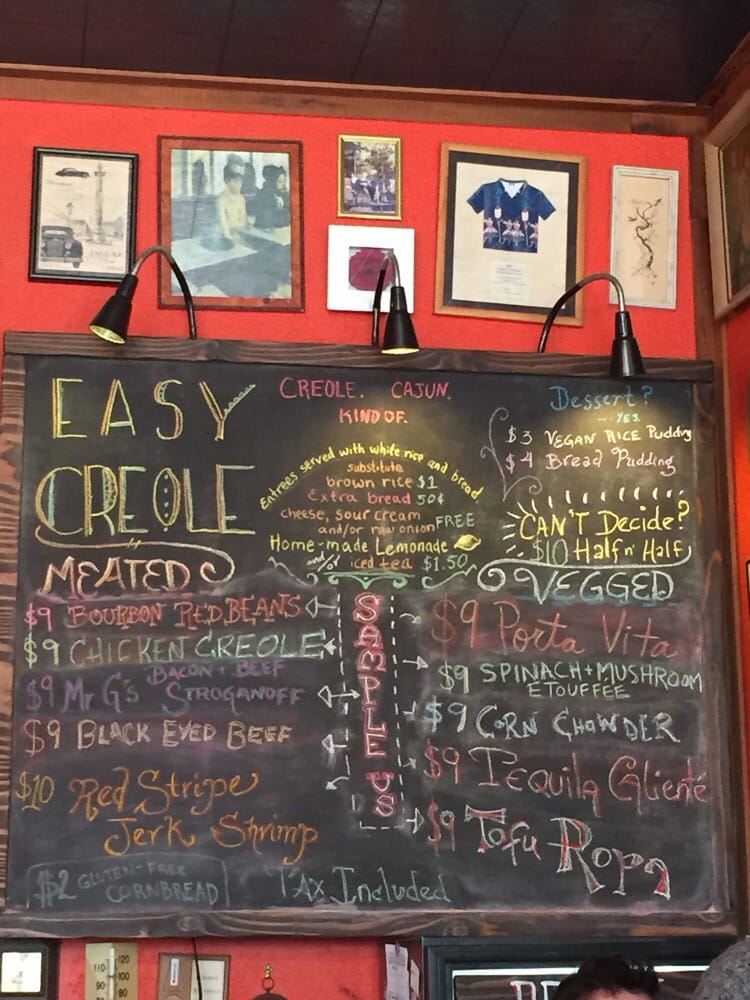 JAGUAR
EASY
CREOLE
CREOLE. CAJUN.
KIND OF.
Entrees served with white rice and bread
substitute
brown rice $1
Extra bread 50¢
cheese, sour cream
and/or raw onion FREE
Home-made Lemonade
and/or iced tea $1.50
Dessert?
... YES.
$3 VEGAN RICE Pudding
$4 Bread Pudding
CAN'T Decide?
$10 Half n' Half
MEATED
$9 BOURBON RED BEANS
$9 CHICKEN CREOLE
BACON + BEEF
$9 Mr G's STROGANOFF
$9 BLACK EYED BEEF
$10 Red Stripe
Jerk Shrimp
$2 GLUTEN-FREE
CORNBREAD
SAMPLE US
VEGGED
$9 Porta Vita
$9 SPINACH + MUSHROOM
ETOUFFEE
$9 CORN CHOWDER
$9 TEQUILA Cliente
$9 Tofu Ropa
TAX Included
110 120
100
90 80